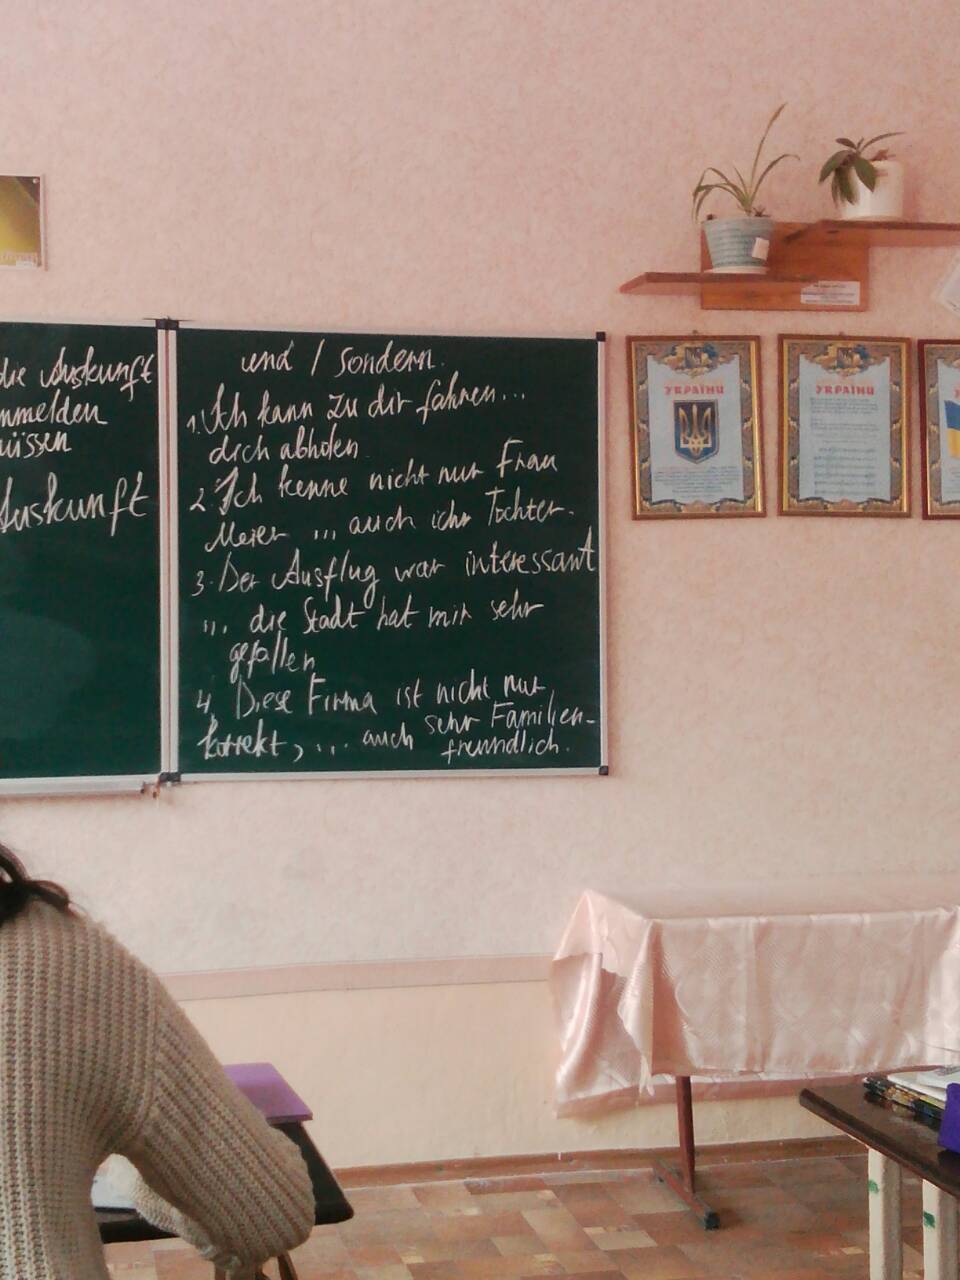 die Auskunft
nmelden
müssen
Auskunft
und / sondern.
1. Ich kann zu dir fahren...
dich abholen
2. Ich kenne nicht nur Frau
Meier ... auch ihr Tochter.
3. Der Ausflug war interessant
... die Stadt hat mir sehr
gefallen
4. Diese Firma ist nicht nur
korrekt, ... auch sehr Familien-
freundlich.
УКРАЇНИ
УКРАЇНИ